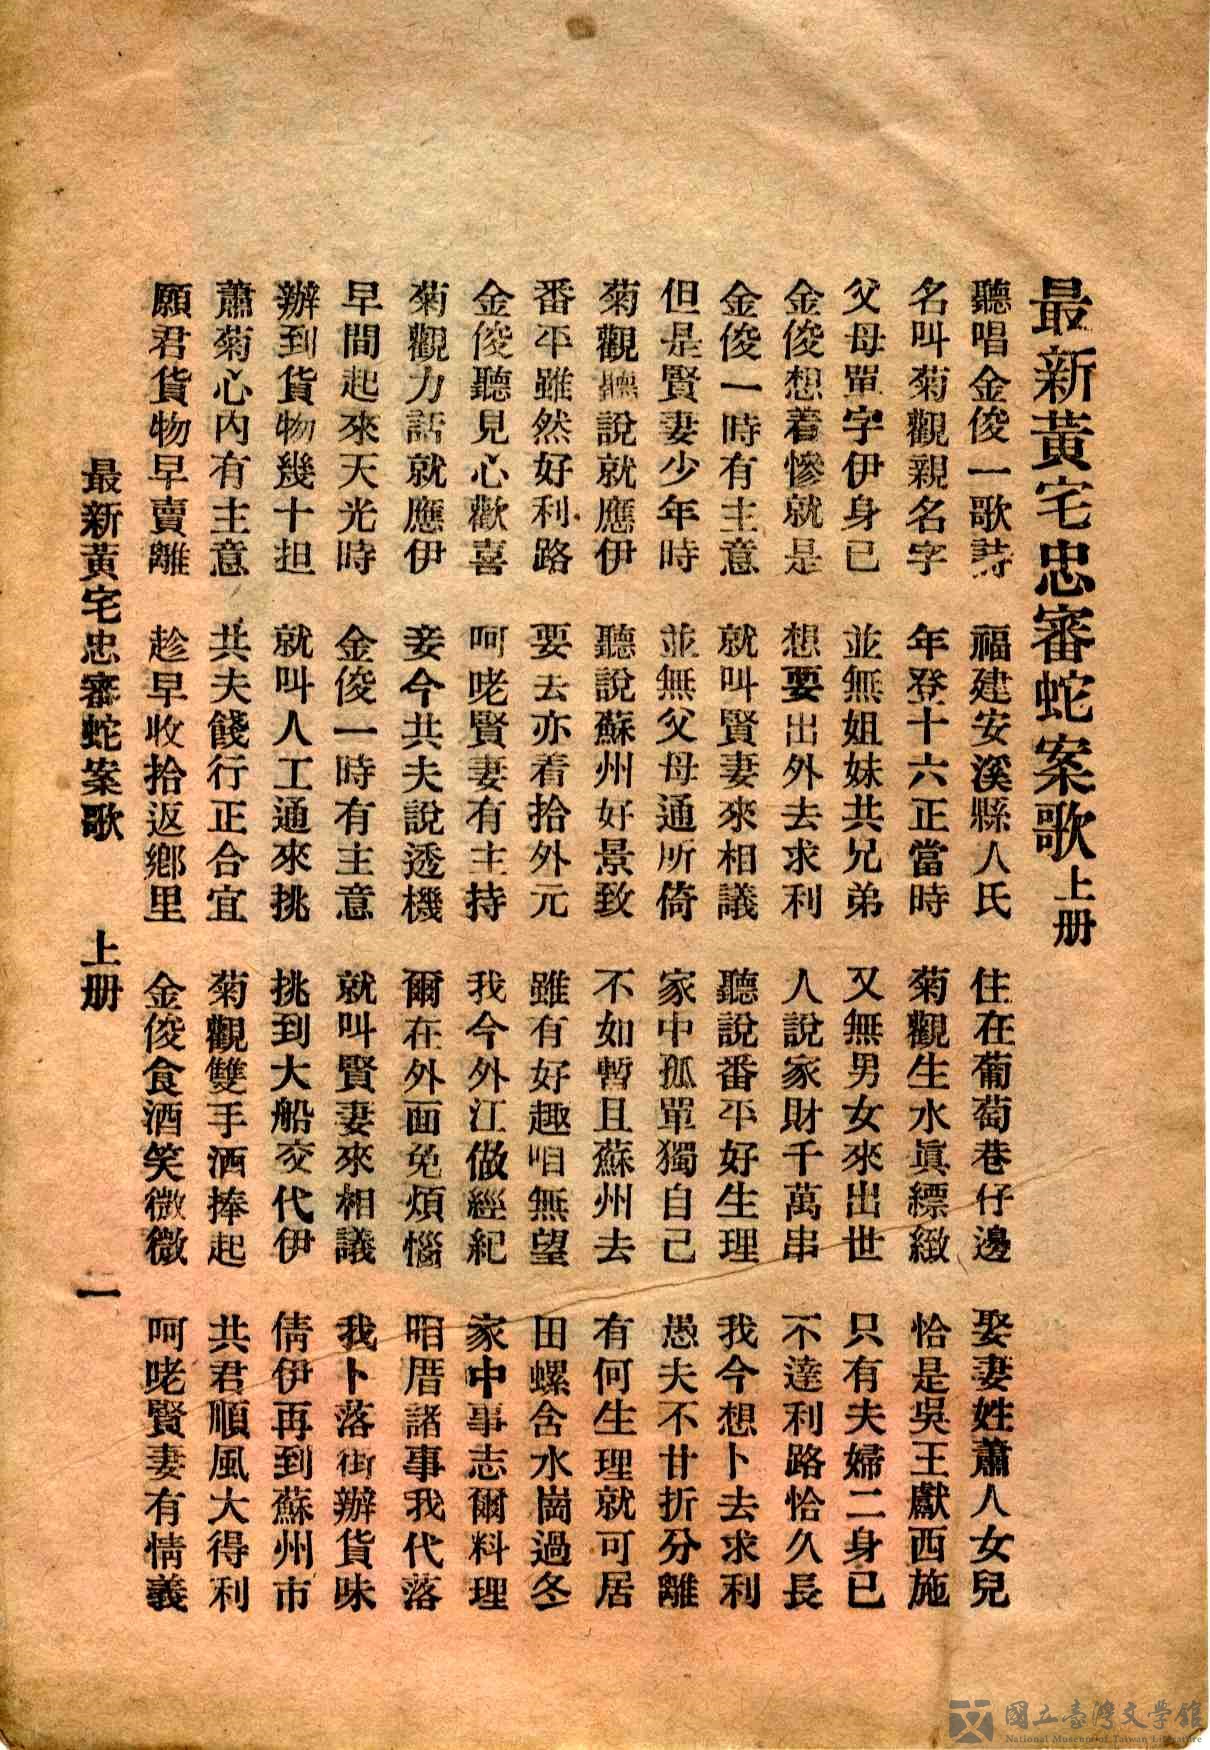 最新黃宅忠審蛇案歌上册
聽唱金俊一歌詩　福建安溪縣人氏　住在葡萄巷仔邊　娶妻姓蕭人女兒
名叫菊觀親名字　年登十六正當時　菊觀生水眞縹緻　恰是吳王獻西施
父母單字伊身已　並無姐妹共兄弟　又無男女來出世　只有夫婦二身已
金俊想着慘就是　想要出外去求利　人說家財千萬串　不達利路恰久長
金俊一時有主意　就叫賢妻來相議　聽說番平好生理　我今想卜去求利
但是賢妻少年時　並無父母通所倚　家中孤單獨自己　愚夫不甘折分離
菊觀聽說就應伊　聽說蘇州好景致　不如暫且蘇州去　有何生理就可居
番平雖然好利路　要去亦着拾外元　雖有好趣咱無望　田螺含水崗過冬
金俊聽見心歡喜　呵咾賢妻有主持　我今外江做經紀　家中事志爾料理
菊觀力話就應伊　妾今共夫說透機　爾在外面免煩惱　咱厝諸事我代落
早間起來天光時　金俊一時有主意　就叫賢妻來相議　我卜落街辦貨味
辦到貨物幾十担　就叫人工通來挑　挑到大船交代伊　倩伊再到蘇州市
蕭菊心內有主意　共夫餞行正合宜　菊觀雙手酒捧起　共君順風大得利
願君貨物早賣離　趁早收拾返鄉里　金俊食酒笑微微　呵咾賢妻有情義
最新黃宅忠審蛇案歌　上册　二
國立臺灣文學館
National Museum of Taiwan Literature